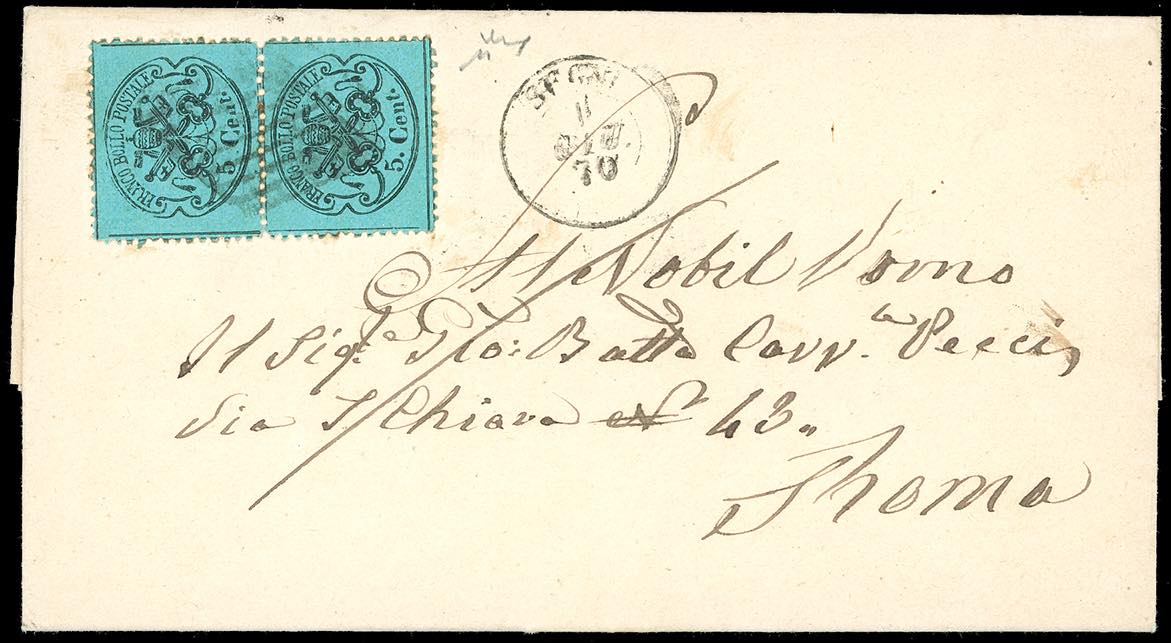 FRANCO BOLLO POSTALE
5 Cent.
FRANCO BOLLO POSTALE
5 Cent.
70
Al Nobil Uomo
Il Sigr. Gio: Batta Cavr. Pecci,
Via S Chiara N° 43.
Roma